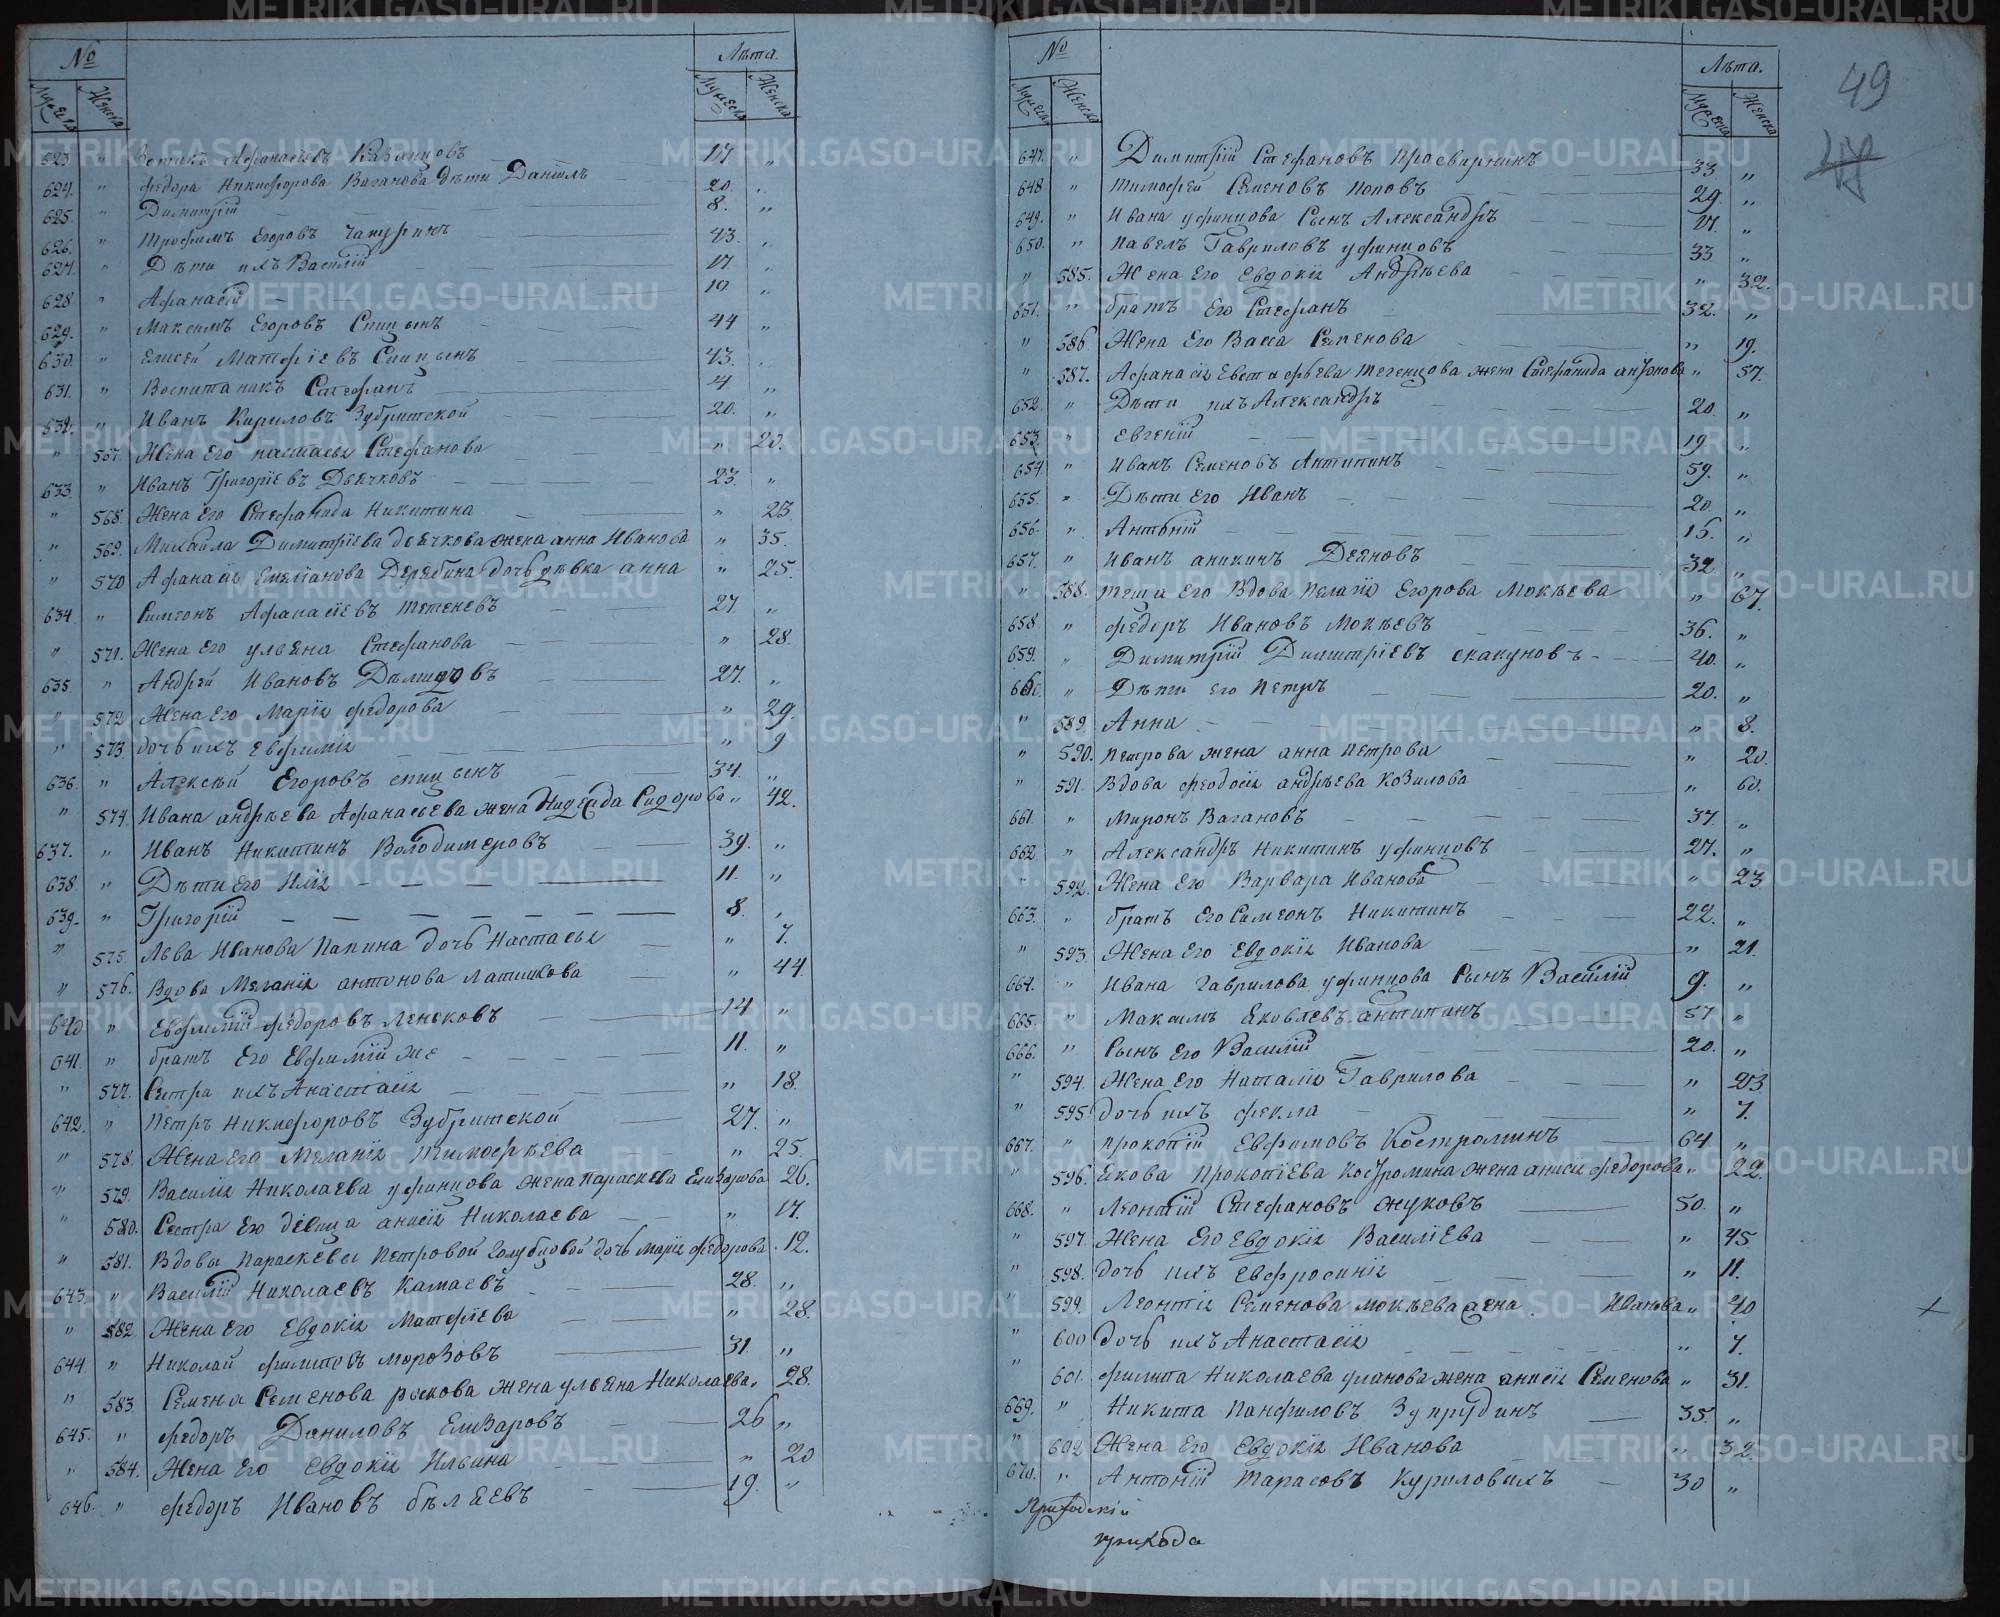 METRIKI.GASO-URAL.RU
№ Лѣта.
Мужеска Женска Мужеска Женска
623. " Зотикъ Афанасіевъ Казанцовъ 17 "
624. " Федора Никифорова Ваганова дѣти Даніилъ 20. "
625. " Димитрій 8. "
626. " Трофимъ Егоровъ Чапуринъ 43. "
627. " Дѣти ихъ Василій 17 "
628. " Афанасій 10. "
629. " Максимъ Егоровъ Спицынъ 44 "
630. " Елисей Матфіевъ Спицынъ 43. "
631. " Воспитаникъ Стефанъ 4 "
632. " Иванъ Кириловъ Зубритской 20. "
" 567. Жена Его настасья Стефанова " 20.
633. " Иванъ Григоріевъ Дьячковъ 23. "
" 568. Жена Его Стефанида Никитина " 23.
" 569. Михаила Димитріева дьячкова жена анна Иванова " 35.
" 570 Афанасія Емеліанова Дерябина дочь дѣвка анна " 25.
634. " Симеонъ Афанасіевъ Тетеневъ 27. "
" 571. Жена Его ульяна Стефанова " 28.
635. " Андрей Ивановъ Дѣмидовъ 27. "
" 572 Жена Его Марія федорова " 29.
" 573 дочь ихъ евфимія " 9
636. " Алексѣй Егоровъ спицынъ 34. "
" 574. Ивана андрѣева Афанасьева жена Надежда Сидорова " 42.
637. " Иванъ Никитинъ Володимеровъ 39. "
638 " Дѣти Его Илія 11. "
639. " Григорій 8. "
" 575. Льва Иванова Папина дочь Настасья " 7.
" 576. Вдова Меланія антонова Латышова " 44.
640 " Евфимій федоровъ Ленсковъ 14 "
641. " братъ Его Евфимій же 11. "
" 577. Сестра ихъ Анастасія " 18.
642. " Петръ Никифоровъ Зубритской 27. "
" 578. Жена Его Меланія Тимофѣева " 25.
" 579. Василія Николаева уфинцова жена Параскева Елизарова 26.
" 580. Сестра Его дѣвица анисія Николаева " 17.
" 581. Вдовы Параскевы Петровой Голубцовой дочь Марія федорова 12.
643. " Василій Николаевъ Катаевъ 28. "
" 582 Жена Его Евдокія Матфіева " 28.
644. " Николай филитовъ морозовъ 31 "
" 583. Семена Семенова рокова жена ульяна Николаева 28.
645. " федоръ Даниловъ Елизаровъ 26 "
" 584. Жена Его Евдокія Ильина " 20
646. " федоръ Ивановъ бѣляевъ 19. "
49
№ Лѣта.
Мужеска Женска Мужеска Женска
647. " Димитрій Стефановъ Просвирнинъ 33 "
648 " Тимофей Семеновъ поповъ 29. "
649. " Ивана уфинцова Сынъ Александръ 17. "
650. " Павелъ Гавриловъ уфинцовъ 33 "
" 585. Жена Его Евдокія Андрѣева " 32.
651. " братъ Его Стефанъ 32. "
" 586 Жена Его Васса Семенова " 19.
" 587. Афанасія Евстафьева Тегенцова жена Стефанида антонова " 57.
652. " Дѣти ихъ Александръ 20. "
653 " евгеній 19. "
654. " Иванъ Семеновъ Антипинъ 59. "
655. " Дѣти Его Иванъ 20. "
656. " Антоній 15. "
657. " Иванъ аникинъ Деяновъ 32. "
" 588. теща Его Вдова Пелагія Егорова Мокѣева " 67.
658. " федоръ Ивановъ Мокѣевъ 36. "
659. " Димитрій Димитріевъ скакуновъ 40. "
660. " Дѣти его Петръ 20. "
" 589 Анна " 8.
" 590. Петрова жена анна Петрова " 20.
" 591. Вдова феодосія андрѣева Козилова " 60.
661. " Миронъ Вагановъ 37. "
662 " Александръ Никитинъ уфинцовъ 27. "
" 592. Жена Его Варвара Иванова " 23
663. " братъ Его Симеонъ Никитинъ 22. "
" 593. Жена Его Евдокія Иванова " 21.
664. " Ивана Гаврилова уфинцова Сынъ Василій 9. "
665. " Максимъ Яковлевъ антипинъ 57 "
666. " Сынъ Его Василій 20. "
" 594. Жена Его Наталія Гаврилова " 23
" 595. дочь ихъ фекла " 7.
667. " прокопій Евфимовъ Костроминъ 64 "
" 596. Якова Прокопіева Костромина жена анисія федорова " 22.
668. " Леонтій Стефановъ жуковъ 50. "
" 597. Жена Его Евдокія Василіева " 45
" 598. дочь ихъ Евфросинія " 11.
" 599. Леонтія Семенова мокѣева жена Иванова " 40
" 600 дочь ихъ Анастасія " 7.
" 601. филипа Николаева уланова жена анисія Семенова " 31.
669. " Никита Панфиловъ Зупрудинъ 35. "
" 602 Жена Его Евдокія Иванова " 32.
670. " Антоній Тарасовъ Куриловихъ 30 "
Приходскій
прихода